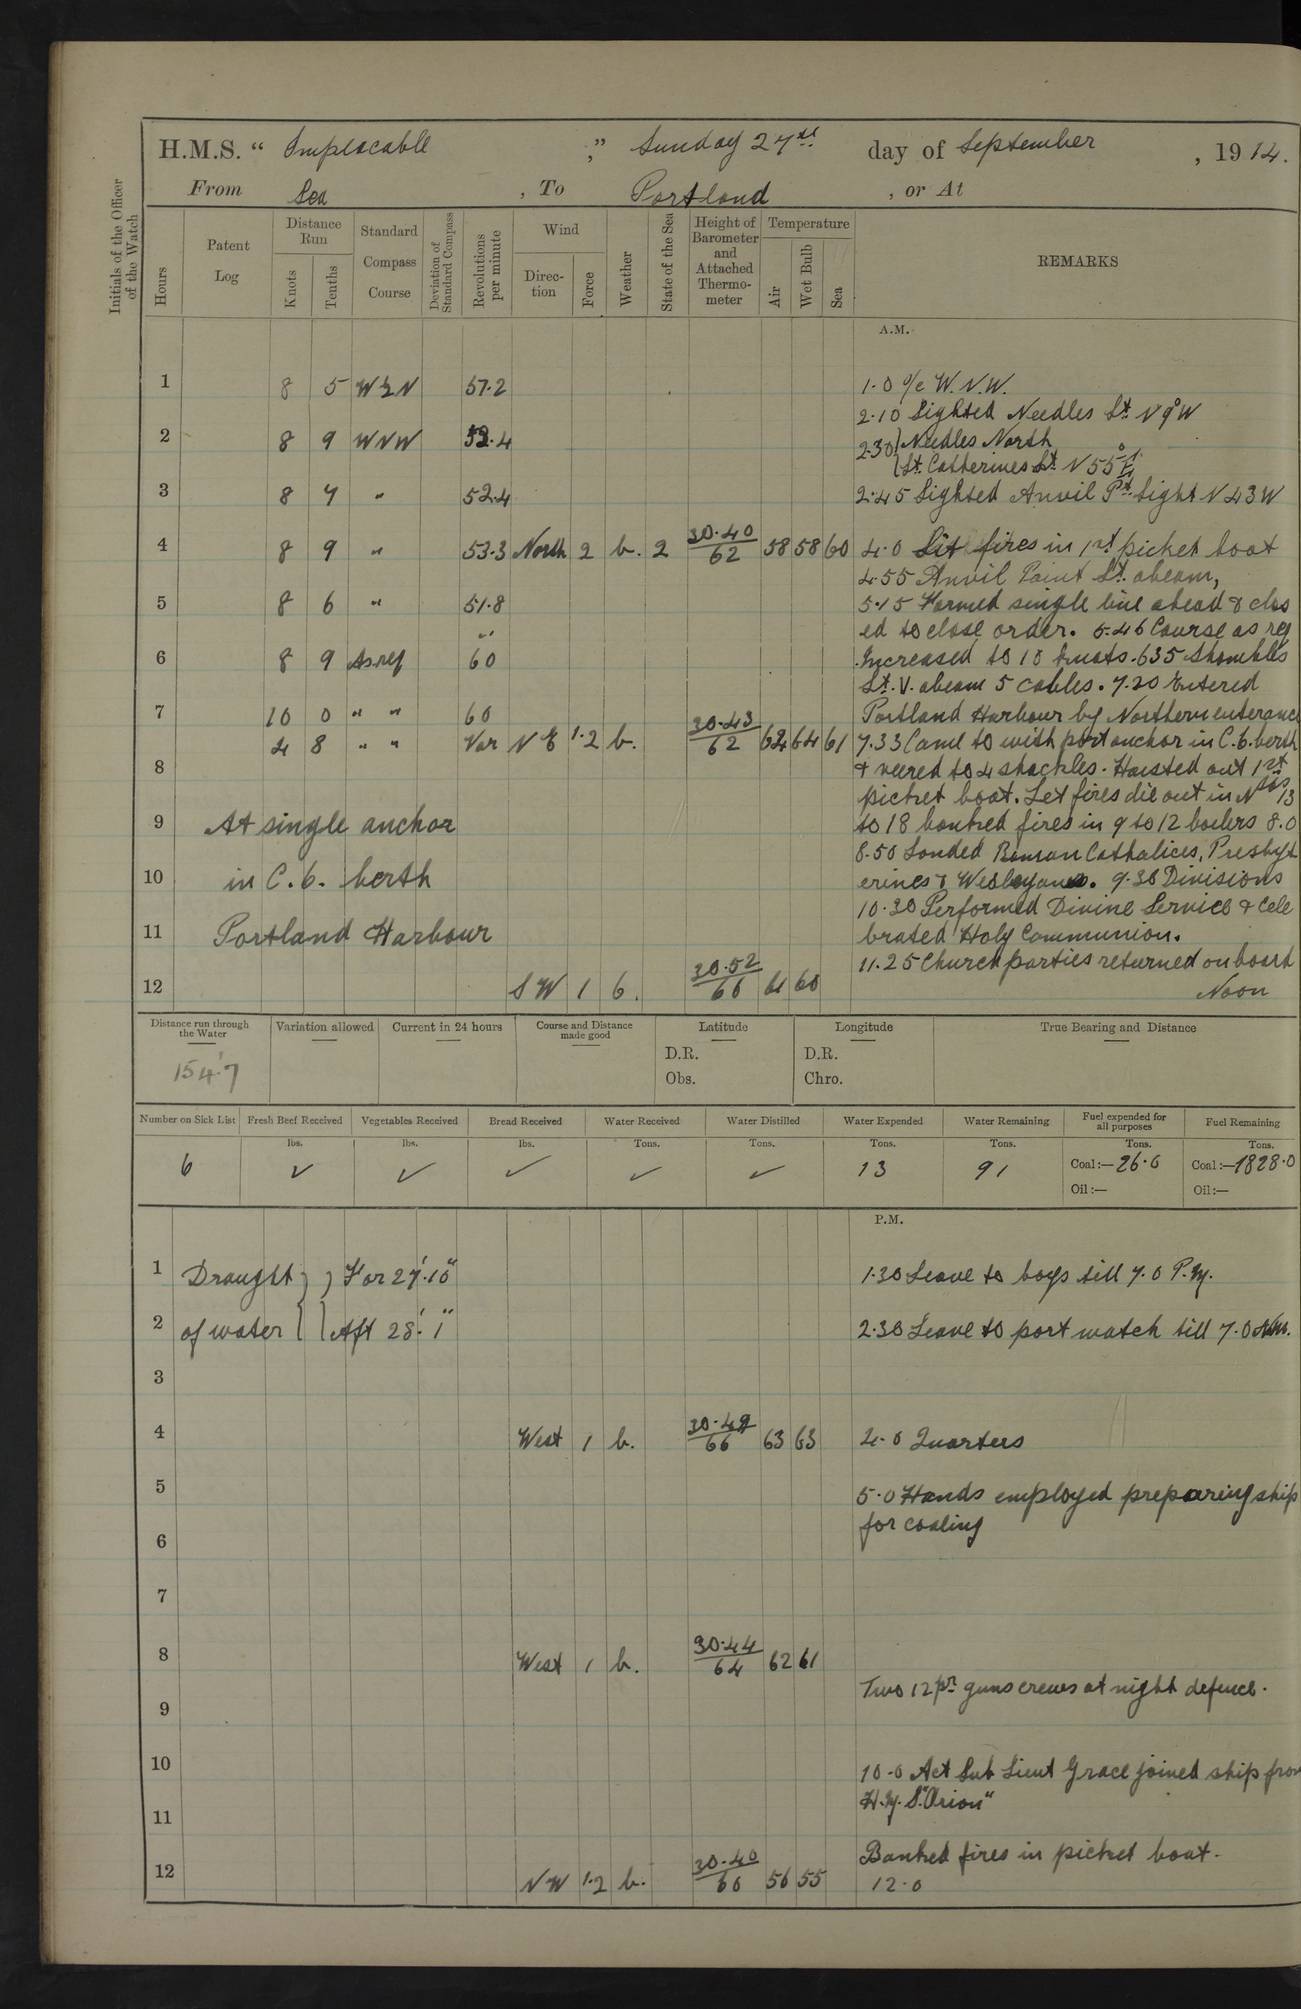 H.M.S. “ Implacable ,” Sunday 27th day of September , 1914.
From Sea , To Portland , or At
Initials of the Officer of the Watch
Hours
Patent Log
Distance Run
Knots
Tenths
Standard Compass Course
Deviation of Standard Compass
Revolutions per minute
Wind
Direc-tion
Force
Weather
State of the Sea
Height of Barometer and Attached Thermo-meter
Temperature
Air
Wet Bulb
Sea
REMARKS
A.M.
1 8 5 W½N 57.2 1.0 a/c W.N.W.
2.10 Sighted Needles Lt. N 9° W
2 8 9 WNW 52.4 2.30 { Needles North
{ St. Catherines Lt N 55° E
3 8 7 " 52.4 2.45 Sighted Anvil Pt. Light N 43 W
4 8 9 " 53.3 North 2 b. 2 30.40/62 58 58 60 4.0 Lit fires in 1st picket boat
4.55 Anvil Point Lt. abeam,
5 8 6 " 51.8 5.15 Formed single line ahead & clos
ed to close order. 5.46 Course as req
6 8 9 As req 60 Increased to 10 knots. 6.35 Shambles
Lt. V. abeam 5 cables. 7.20 Entered
7 10 0 " " 60 Portland Harbour by Northern enterance
4 8 " " Var NE 1.2 b. 30.43/62 62 64 61 7.33 Came to with port anchor in C.6. berth
8 & veered to 4 shackles. Hoisted out 1st
picket boat. Let fires die out in Nos 13
9 At single anchor to 18 banked fires in 9 to 12 boilers 8.0
8.50 Landed Roman Catholices, Presbyt
10 in C.6. berth erines & Wesleyans. 9.30 Divisions
10.30 Performed Divine Service & Cele
11 Portland Harbour brated Holy Communion.
11.25 Church parties returned on board
12 SW 1 b. 30.52/66 61 60 Noon
Distance run through the Water
Variation allowed
Current in 24 hours
Course and Distance made good
Latitude
Longitude
True Bearing and Distance
D.R. D.R.
154.7 Obs. Chro.
Number on Sick List Fresh Beef Received Vegetables Received Bread Received Water Received Water Distilled Water Expended Water Remaining Fuel expended for all purposes Fuel Remaining
lbs. lbs. lbs. Tons. Tons. Tons. Tons. Tons. Tons.
6 ✓ ✓ ✓ ✓ ✓ 13 91 Coal:— 26.0 Coal:— 1828.0
Oil:— Oil:—
P.M.
1 Draught } } For 27'.10" 1.30 Leave to boys till 7.0 P.M.
2 of water } } Aft 28'. 1" 2.30 Leave to port watch till 7.0
3
4 West 1 b. 30.49/66 63 63 4.0 Quarters
5 5.0 Hands employed preparing ship
for coaling
6
7
8 West 1 b. 30.44/64 62 61
Two 12pr guns crews at night defence.
9
10 10.0 Act Sub Lieut Grace joined ship from
H.M.S. "Orion"
11
Banked fires in picket boat.
12 NW 1.2 b. 30.40/60 56 55 12.0